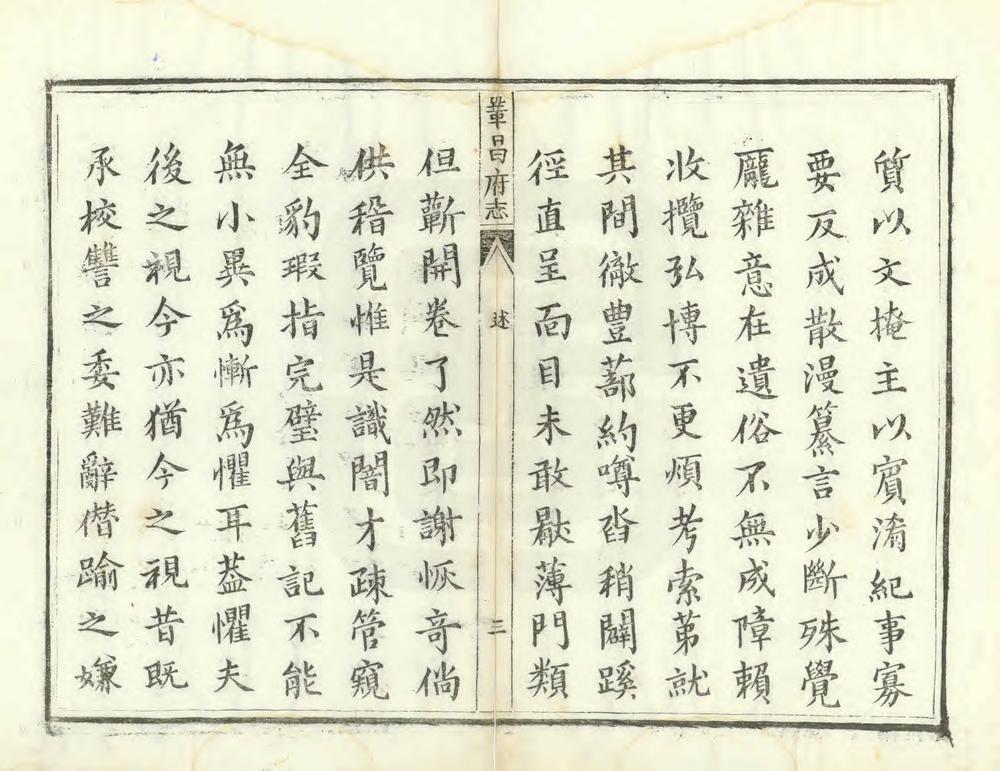 質以文掩主以賓淆紀事寡
要反成散漫纂言少斷殊覺
龐雜意在遺俗不無成障賴
收攬弘博不更煩考索第就
其間徹豊蔀約噂沓稍闢蹊
徑直呈面目未敢㬥薄門類
鞏昌府志
述
三
但蘄開卷了然即謝恢竒倘
供稽覽惟是識闇才疎管窺
全豹瑕指完璧與舊記不能
無小異爲慚爲懼耳葢懼夫
後之視今亦猶今之視昔既
承校讐之委難辭僭踰之嫌